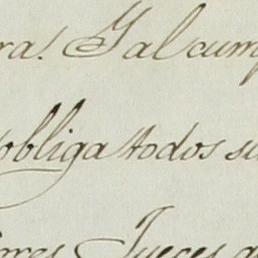 ra. Y al cump
obliga todos su
ores Jueces q